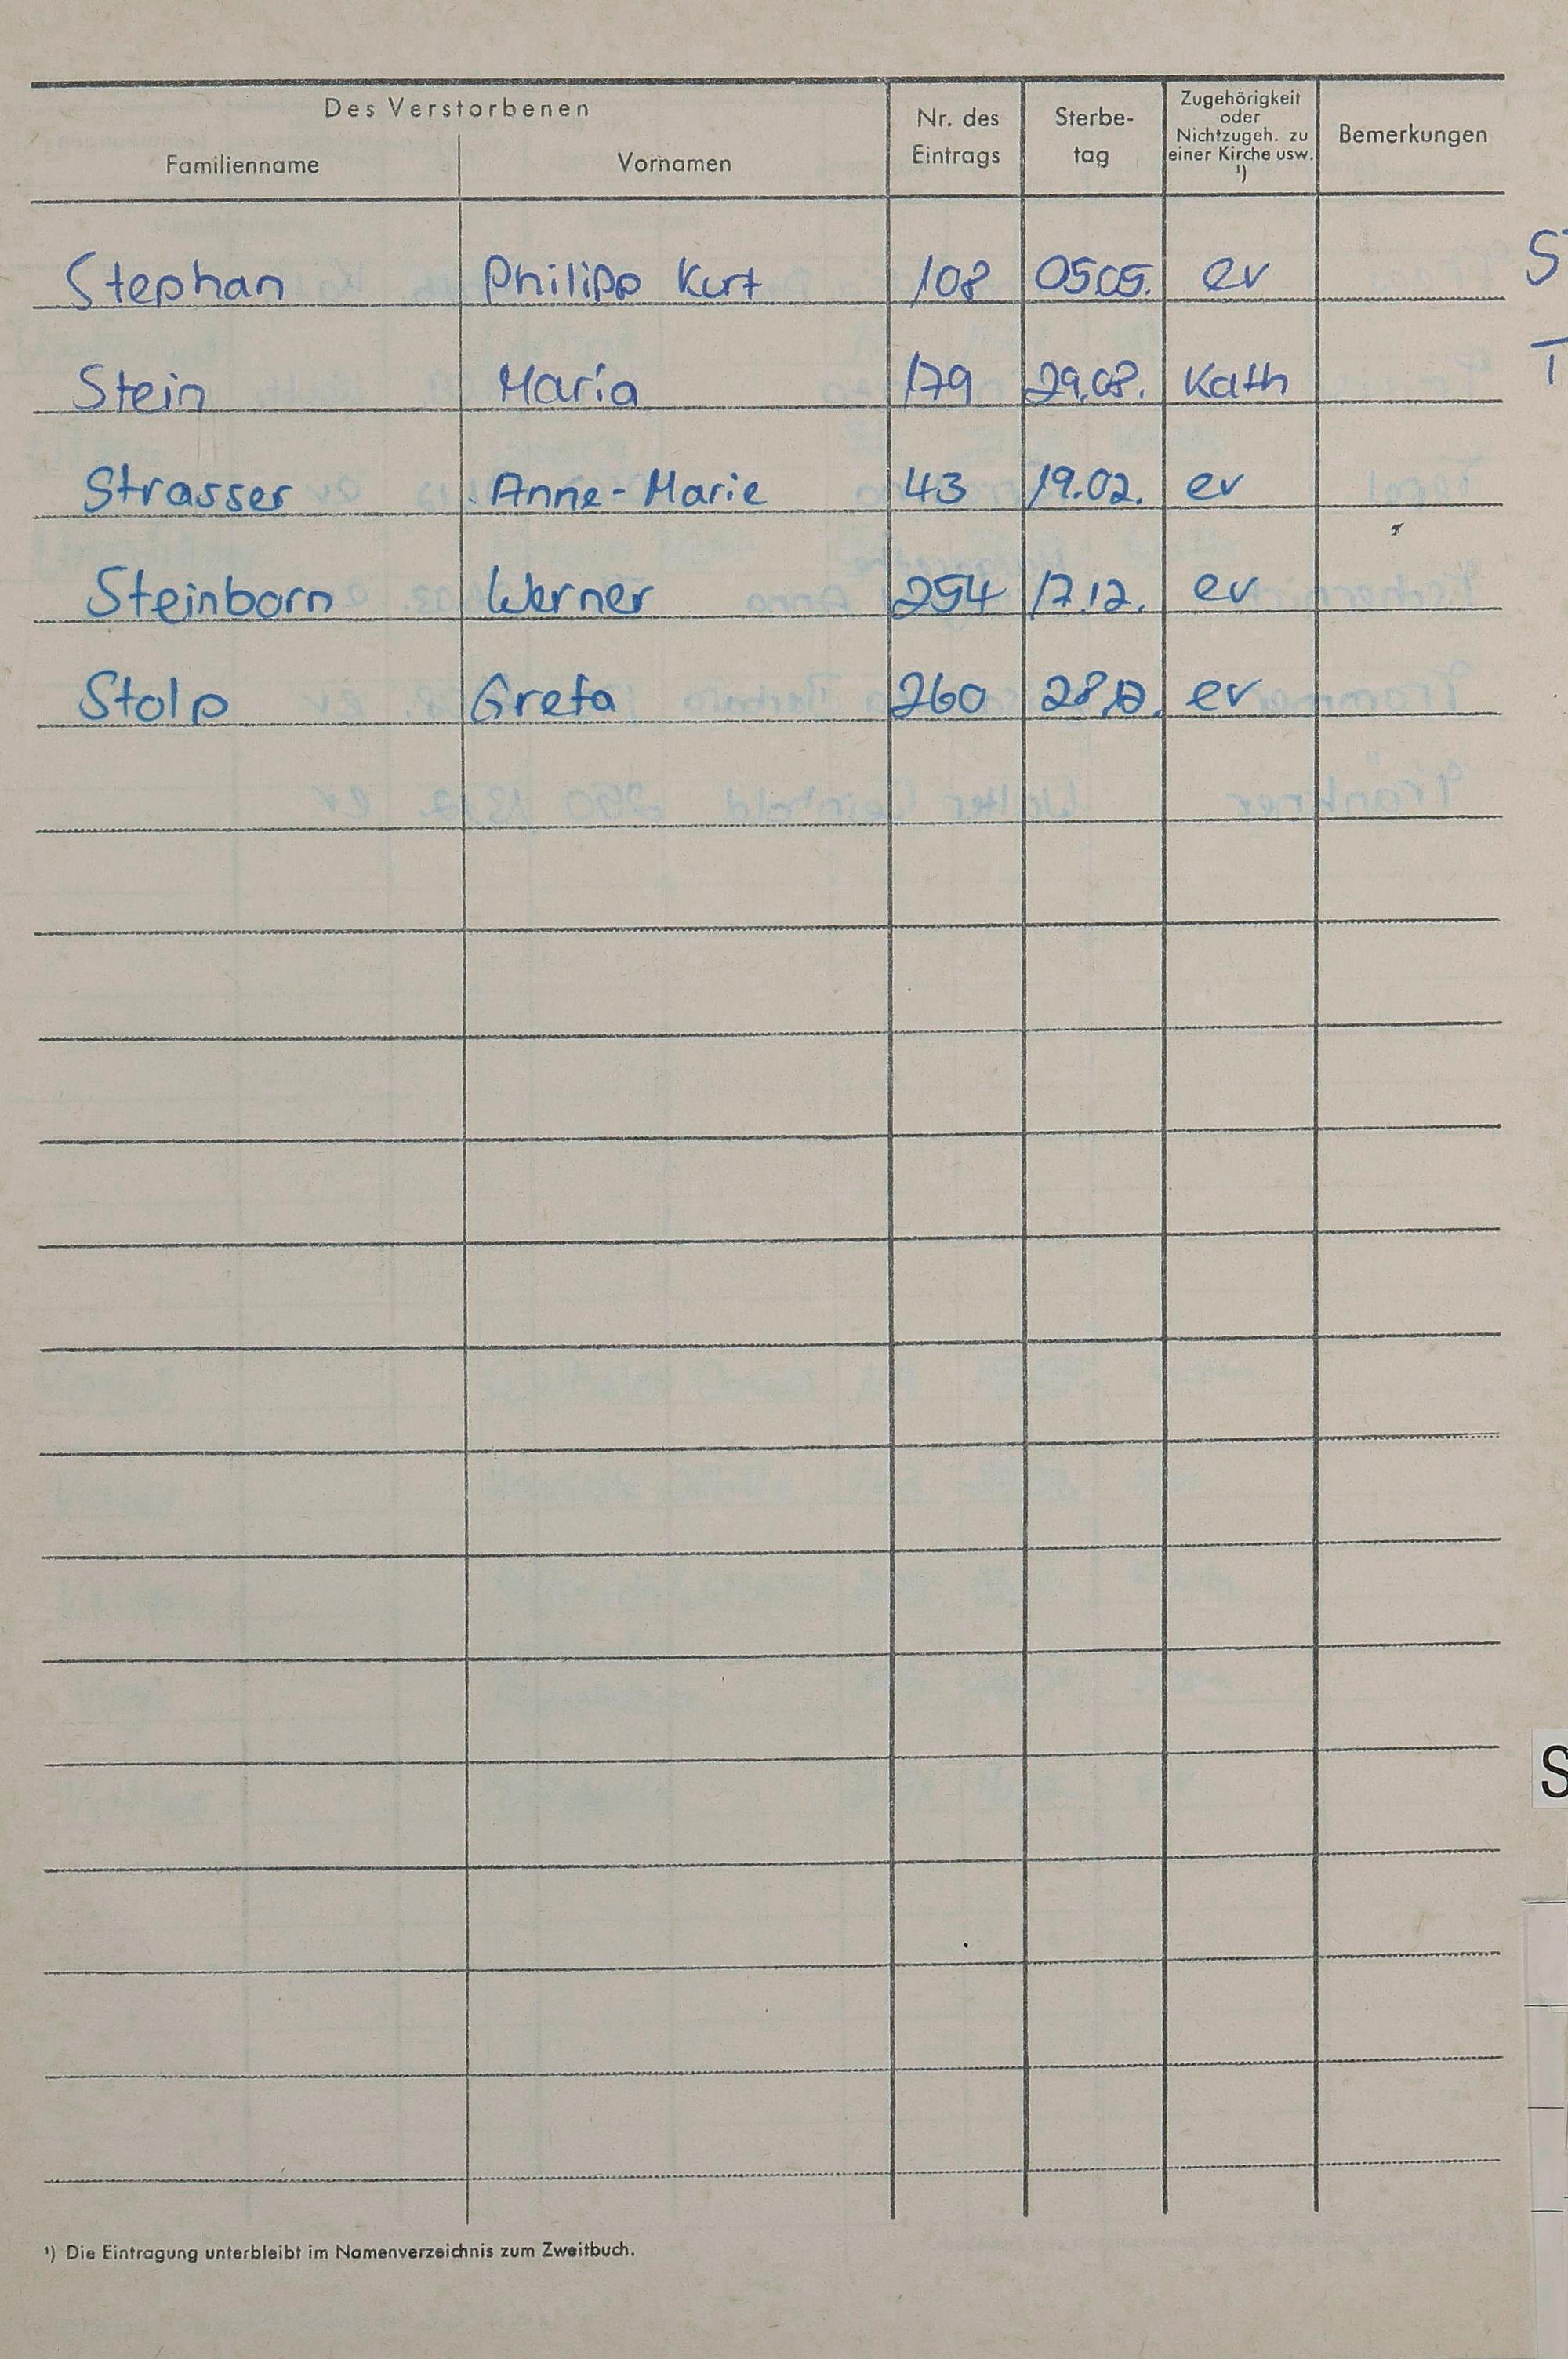 Des Verstorbenen
Familienname Vornamen Nr. des Eintrags Sterbe-tag Zugehörigkeit oder Nichtzugeh. zu einer Kirche usw. ¹) Bemerkungen
Stephan Philipp Kurt 108 05.05. ev
Stein Maria 179 29.08. Kath
Strasser Anne-Marie 43 19.02. ev
Steinborn Werner 254 17.12. ev
Stolp Greta 260 ev
¹) Die Eintragung unterbleibt im Namenverzeichnis zum Zweitbuch.